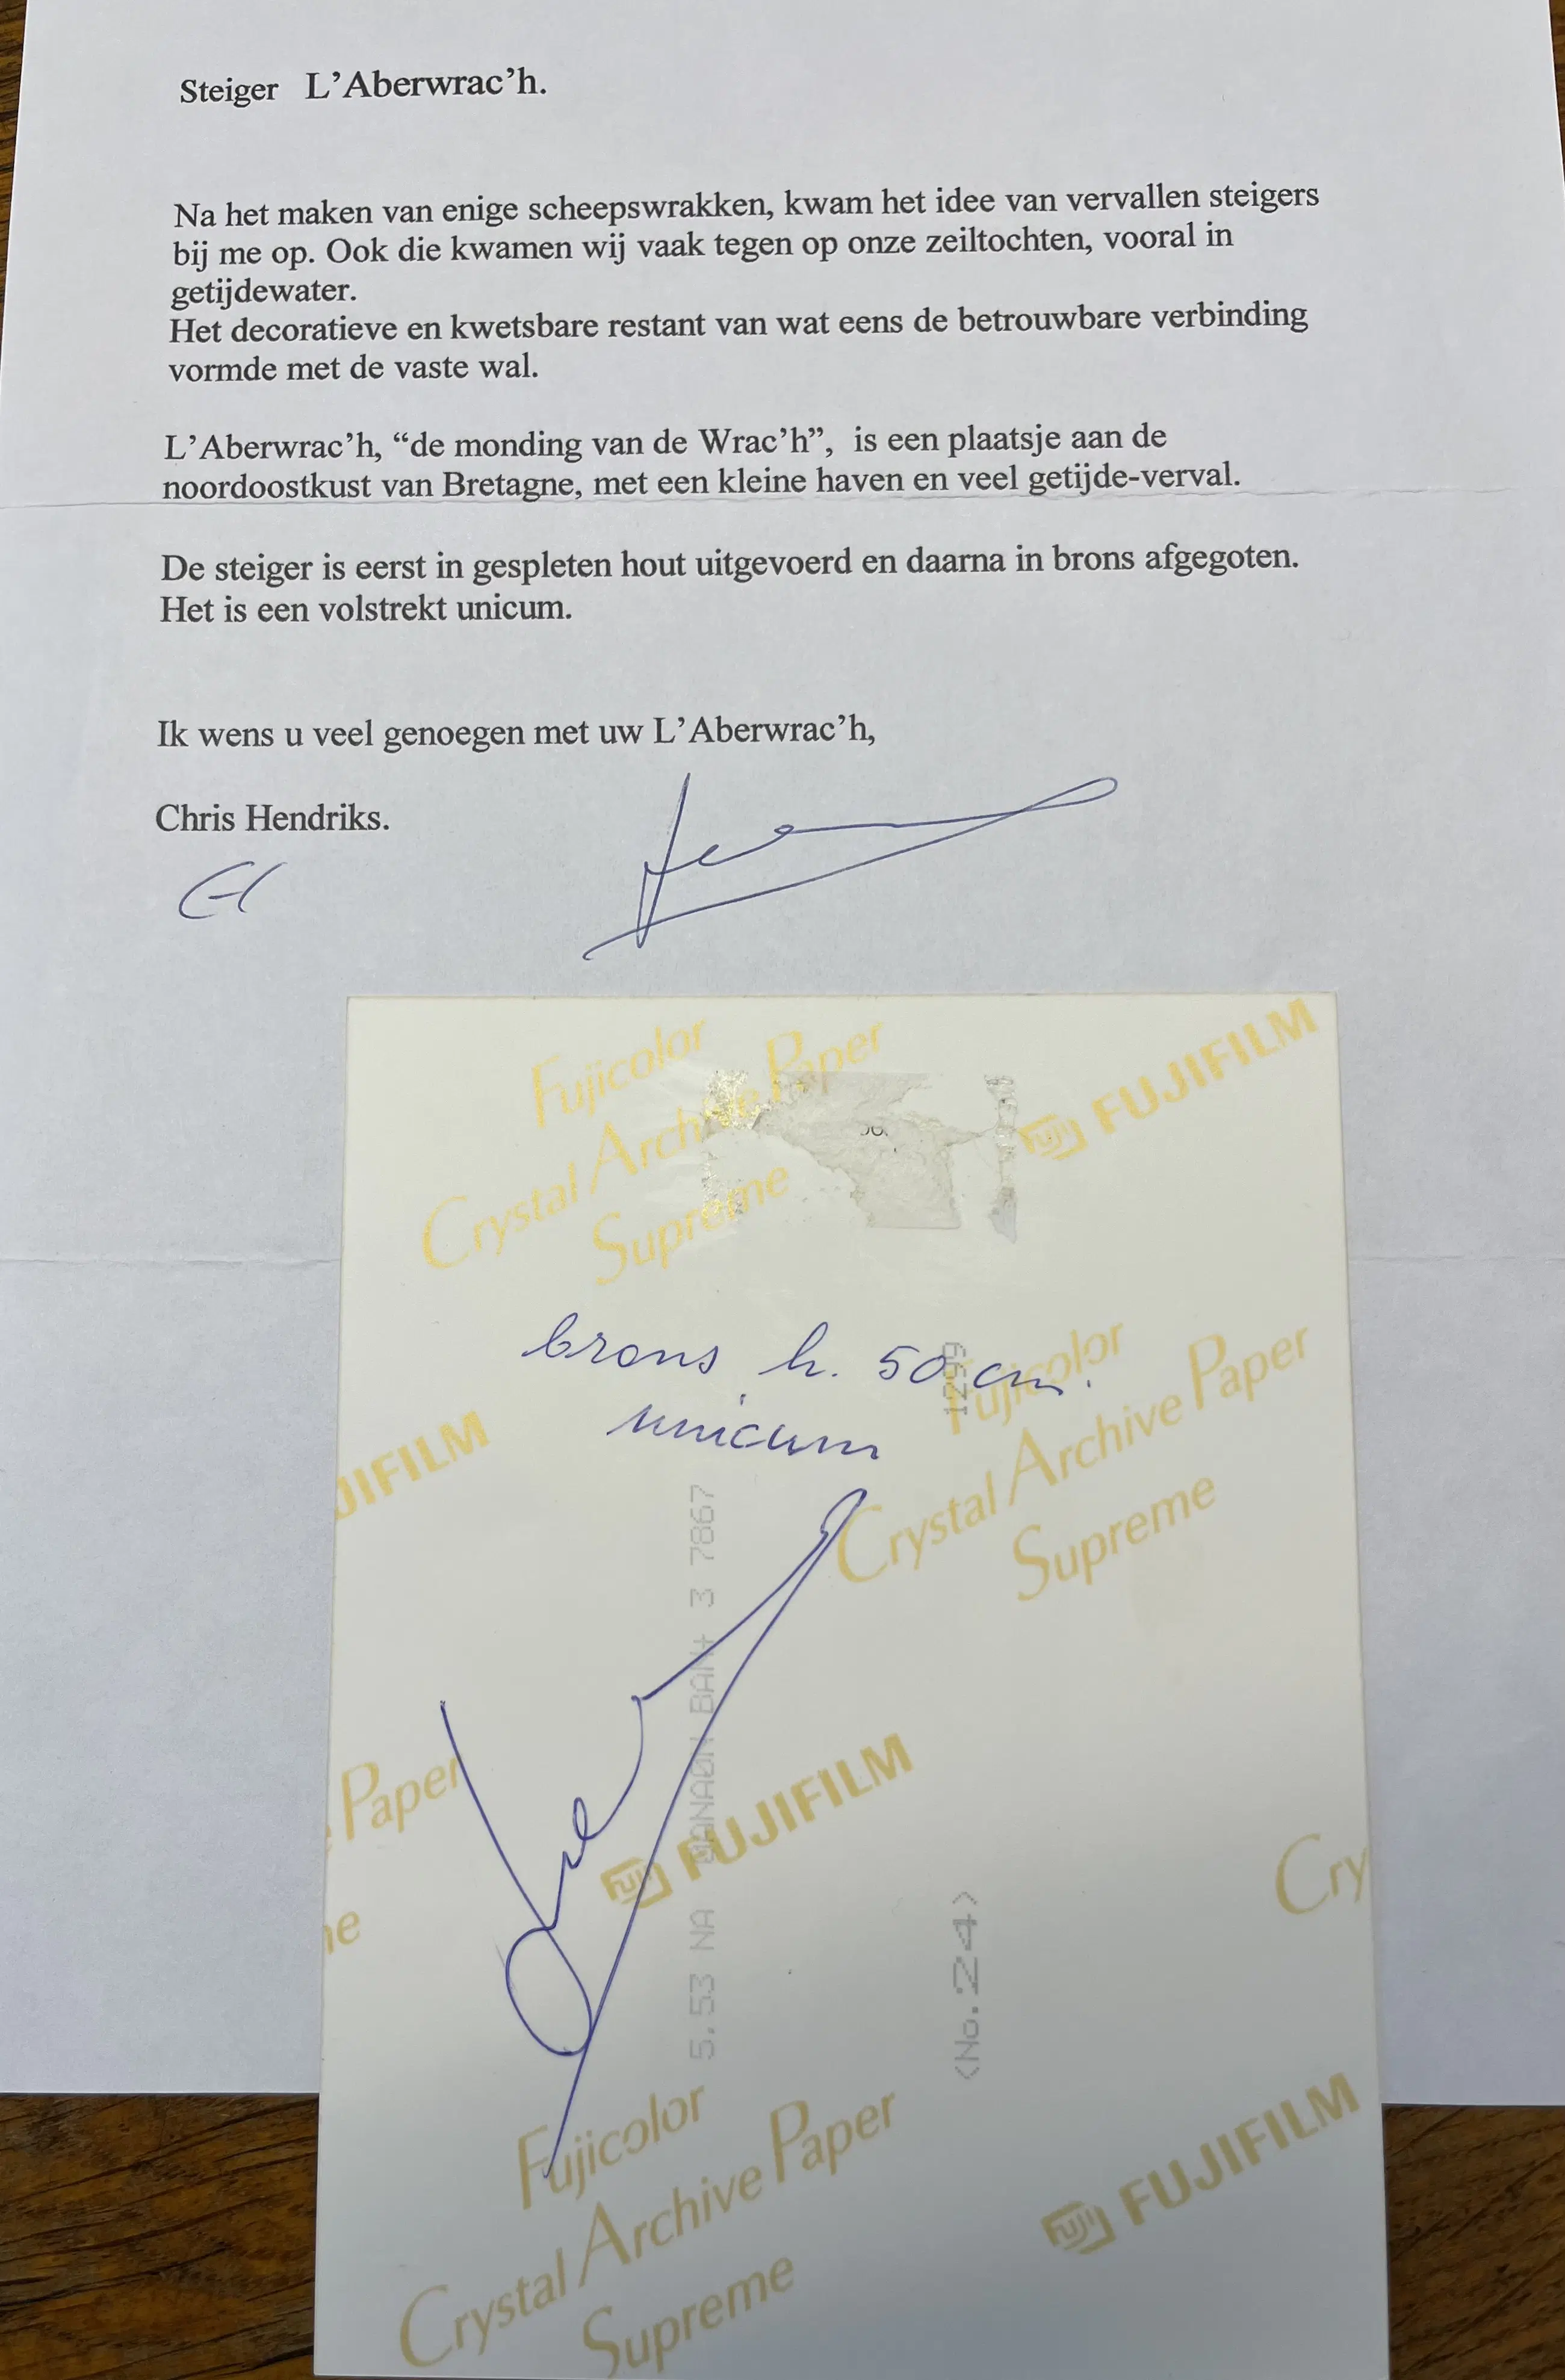 Steiger L’Aberwrac’h.
Na het maken van enige scheepswrakken, kwam het idee van vervallen steigers
bij me op. Ook die kwamen wij vaak tegen op onze zeiltochten, vooral in
getijdewater.
Het decoratieve en kwetsbare restant van wat eens de betrouwbare verbinding
vormde met de vaste wal.
L’Aberwrac’h, “de monding van de Wrac’h”, is een plaatsje aan de
noordoostkust van Bretagne, met een kleine haven en veel getijde-verval.
De steiger is eerst in gespleten hout uitgevoerd en daarna in brons afgegoten.
Het is een volstrekt unicum.
Ik wens u veel genoegen met uw L’Aberwrac’h,
Chris Hendriks.
Fujicolor
Crystal Archive Paper
Supreme
FUJIFILM
brons h. 50 cm.
unicum
1299
Fujicolor
Crystal Archive Paper
Supreme
JIFILM
5,53 NA ANA0N BAN+ 3 7867
Paper
FUJIFILM
Cry
<No.24>
Fujicolor
Crystal Archive Paper
Supreme
FUJIFILM